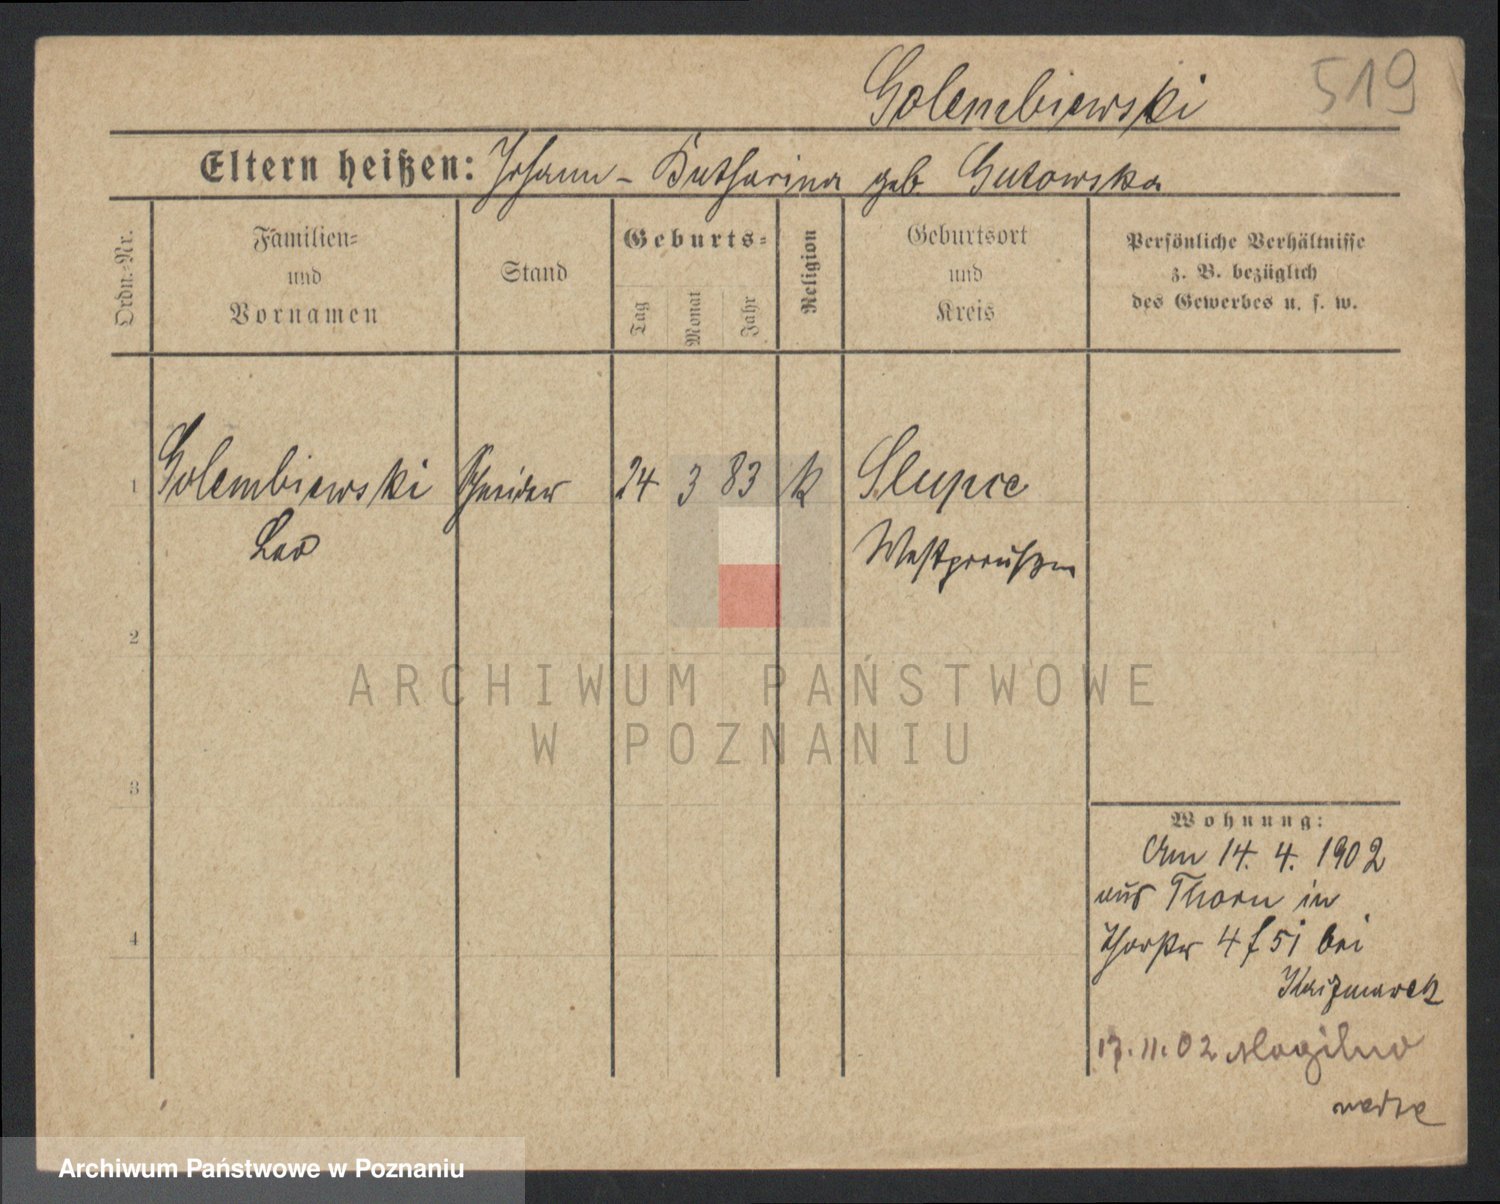 519
Golembiewski
Eltern heißen: Johann - Katharina geb Gutowska
Ordn.-Nr.
Familien-
und
Vornamen
Stand
Geburts-
Tag
Monat
Jahr
Religion
Geburtsort
und
Kreis
Persönliche Verhältnisse
z. B. bezüglich
des Gewerbes u. s. w.
1 Golembiewski Schneider 24 3 83 k Slupce
Leo Westpreußen
2
3
4
ARCHIWUM PAŃSTWOWE
W POZNANIU
Wohnung:
Am 14. 4. 1902
aus Thorn in
Thorstr 4 f 51 bei
Kaczmarek
17. 11. 02 Mogilno
Archiwum Państwowe w Poznaniu